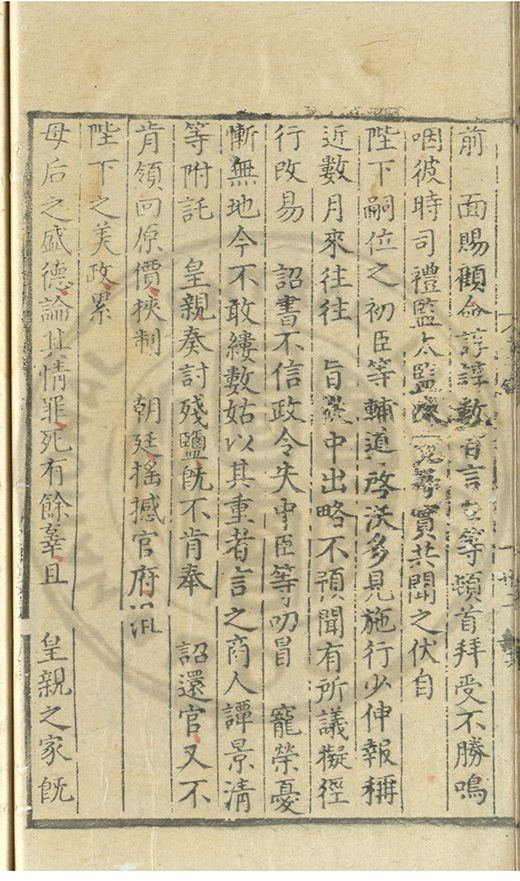 前　面賜顧命諄諄數百言臣等頓首拜受不勝嗚
咽彼時司禮監太監陳寬等實共聞之伏自
陛下嗣位之初臣等輔道啓沃多見施行少伸報稱
近數月來往往　旨從中出略不預聞有所議擬徑
行改易　詔書不信政令失中臣等叨冒　寵榮憂
慚無地今不敢縷數姑以其重者言之商人譚景清
等附託　皇親奏討殘鹽旣不肯奉　詔還官又不
肯領回原價挾制　朝廷搖撼官府汛
陛下之美政累
母后之盛德論其情罪死有餘辜且　皇親之家旣